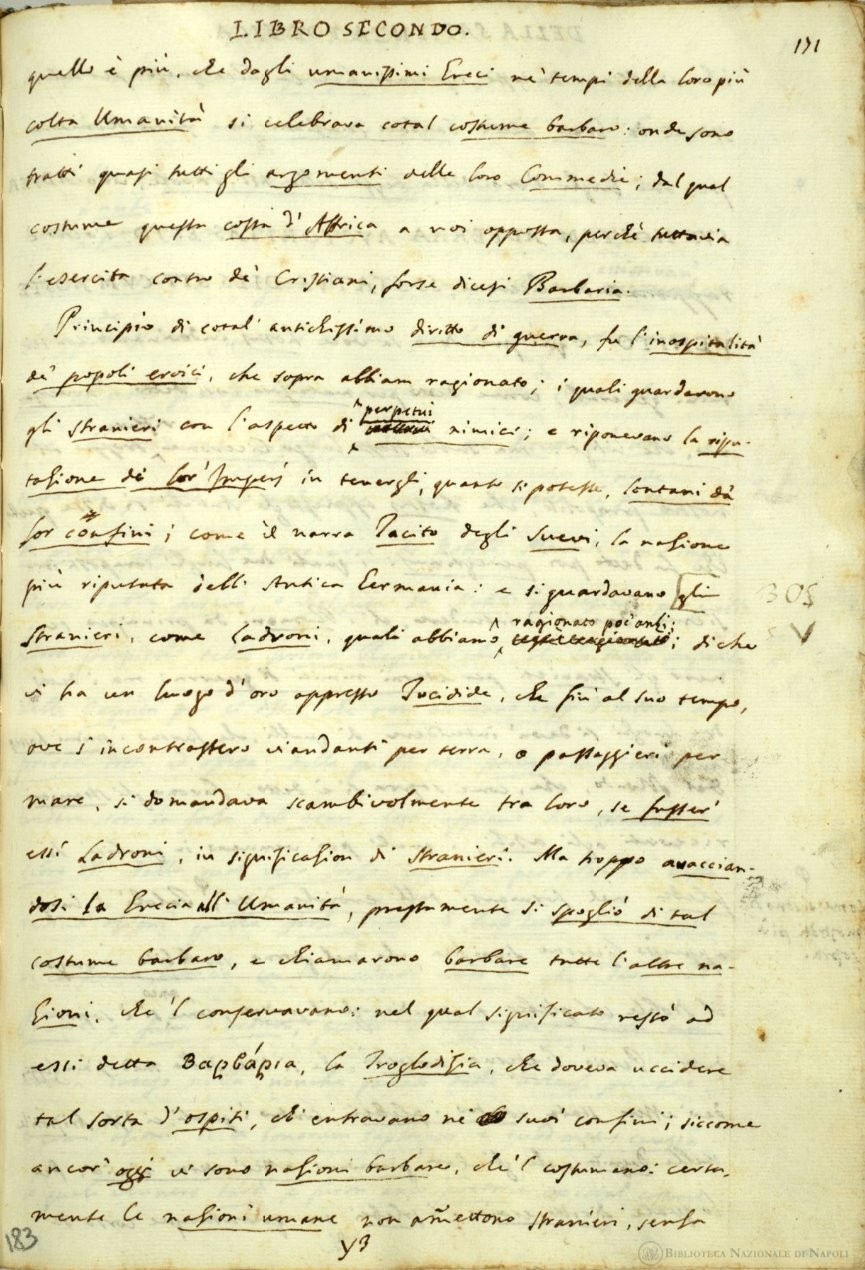 LIBRO SECONDO.
171
quello è più, che dagli umanissimi Greci nè tempi della loro più
colta Umanità si celebrava cotal costume barbaro: onde sono
tratti quasi tutti gli argomenti delle loro Commedie; dal qual
costume questa costa d'Affrica a noi opposta, perchè tuttavia
l'esercita contro dè Cristiani, forse dicesi Barbaria.
Principio di cotal' antichissimo diritto di guerra, fu l'inospitalità
dè popoli eroici, che sopra abbiam ragionato; i quali guardavano
gli stranieri con l'aspetto di perpetui nimici; e riponevano la ripu-
tazione dè lor' Imperj in tenergli, quanto si potesse, lontani dà
lor confini; come il narra Tacito degli Suevi, la nazione
più riputata dell' Antica Germania: e si guardavano gli
305
Stranieri, come Ladroni, quali abbiamo ragionato poc'anzi; di che
vi ha un luogo d'oro appresso Tucidide, che fin al suo tempo,
ove s'incontrassero viandanti per terra, o passaggieri per
mare, si domandava scambivolmente tra loro, se fusser'
essi Ladroni, in significazion di Stranieri. Ma troppo avaccian-
dosi la Grecia all' Umanità, prestamente si spogliò di tal
costume barbaro, e chiamarono barbare tutte l'altre na-
zioni, che 'l conservavano: nel qual significato restò ad
essi detta Βαρβάρια, la Troglodizia, che doveva uccidere
tal sorta d'ospiti, ch' entravano nè suoi confini; siccome
ancor' oggi vi sono nazioni barbare, che 'l costumano: certa-
mente le nazioni umane non ammettono stranieri, senza
183
y3
BIBLIOTECA NAZIONALE DI NAPOLI